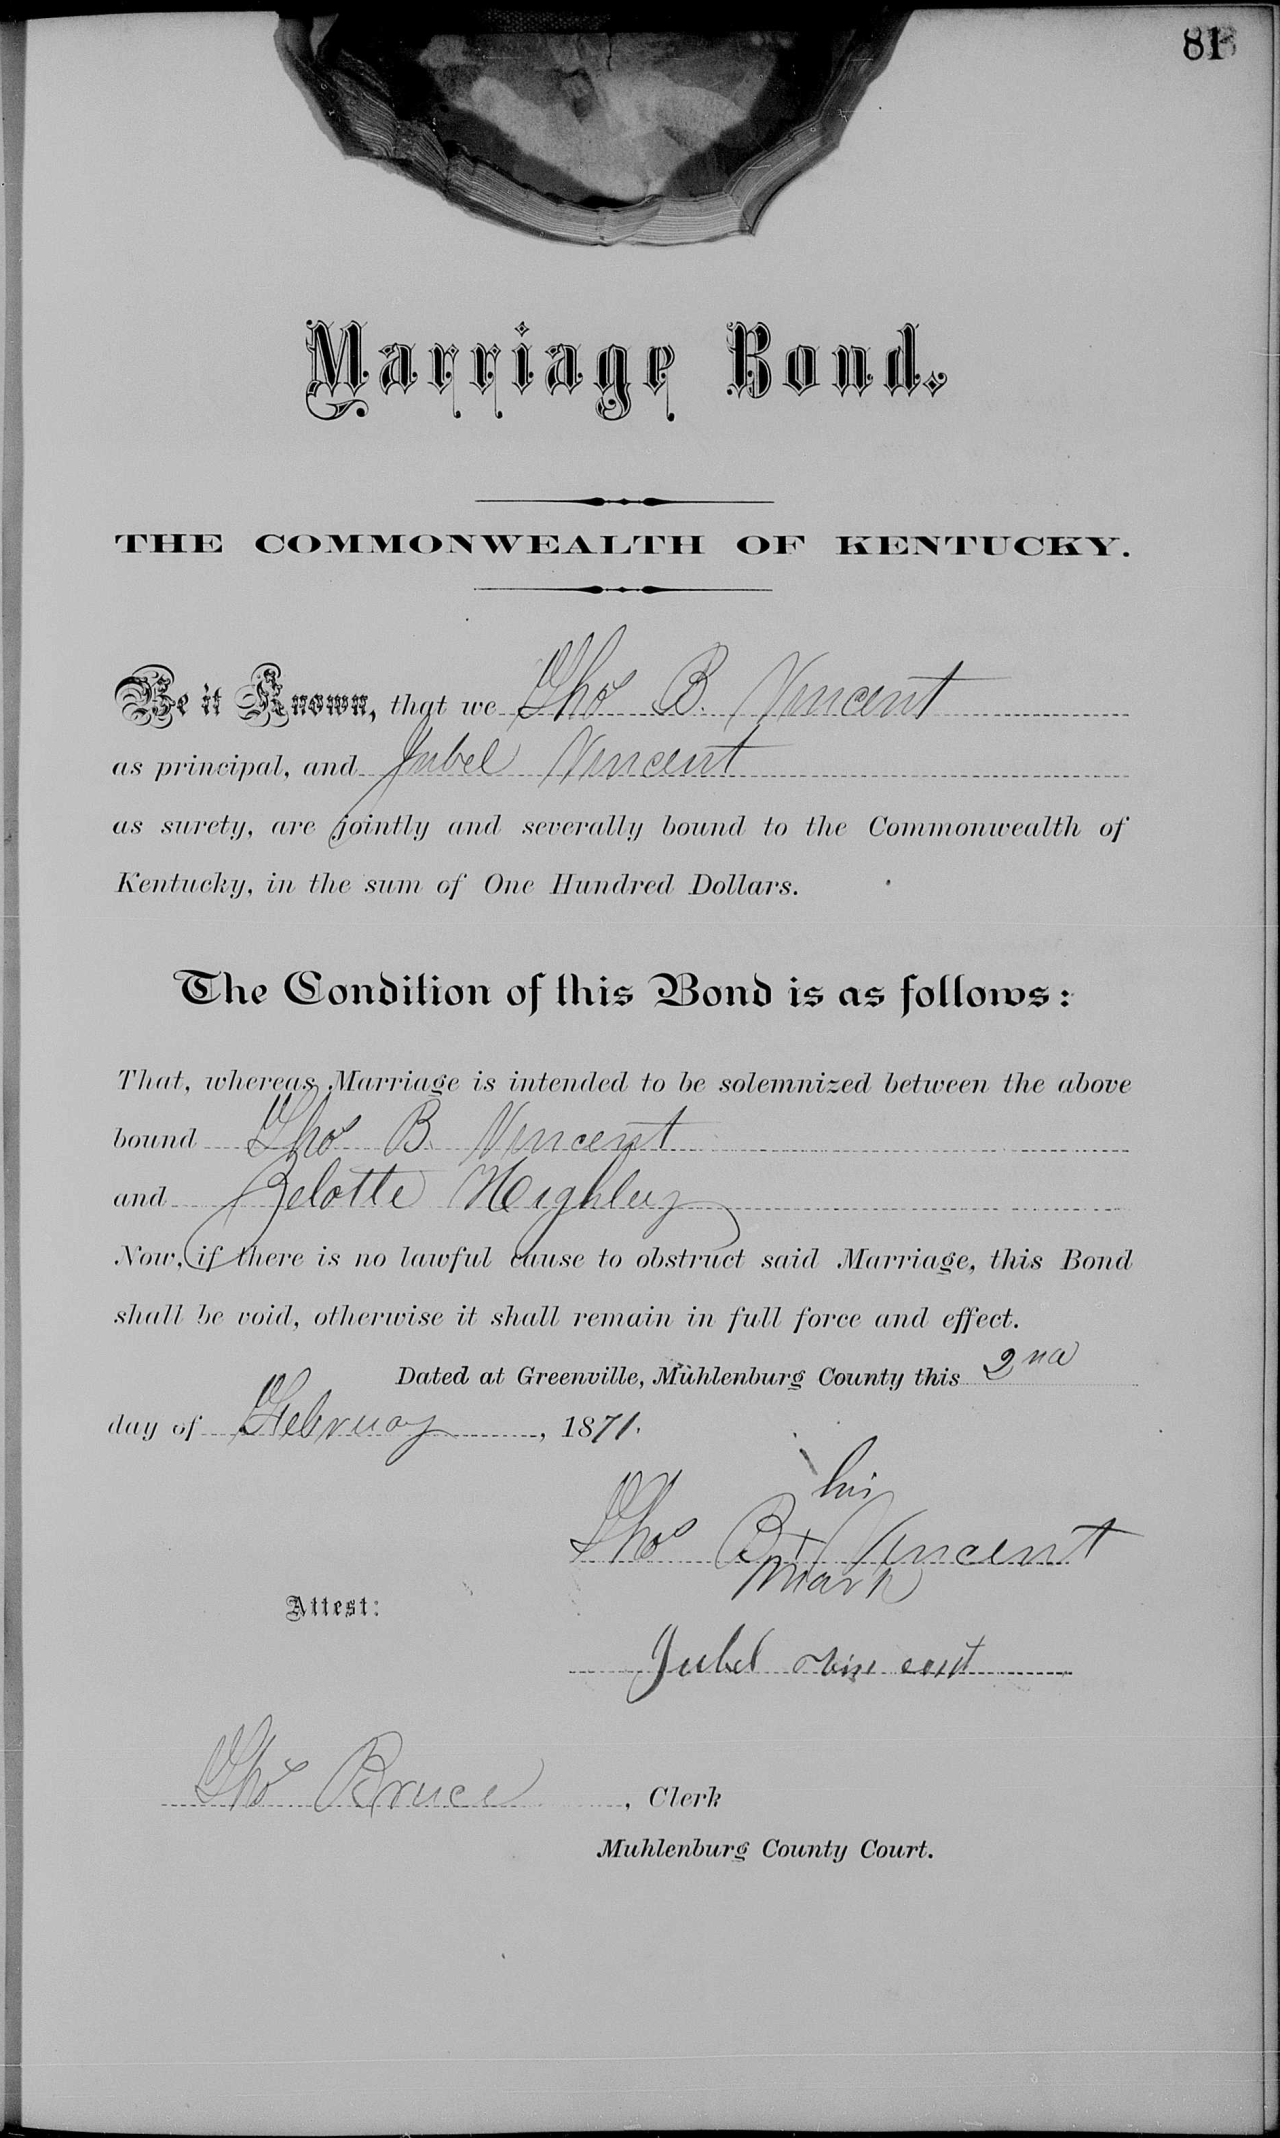 81
Marriage Bond.
THE COMMONWEALTH OF KENTUCKY.
Be it Known, that we Thos B. Vincent
as principal, and Jubel Vincent
as surety, are jointly and severally bound to the Commonwealth of
Kentucky, in the sum of One Hundred Dollars.
The Condition of this Bond is as follows:
That, whereas Marriage is intended to be solemnized between the above
bound Thos B. Vincent
and Zelotte Highley
Now, if there is no lawful cause to obstruct said Marriage, this Bond
shall be void, otherwise it shall remain in full force and effect.
Dated at Greenville, Muhlenburg County this 2nd
day of Februay, 1871.
his
Thos B. + Vincent
mark
Attest:
Jubel Vincent
Thos Bruce, Clerk
Muhlenburg County Court.